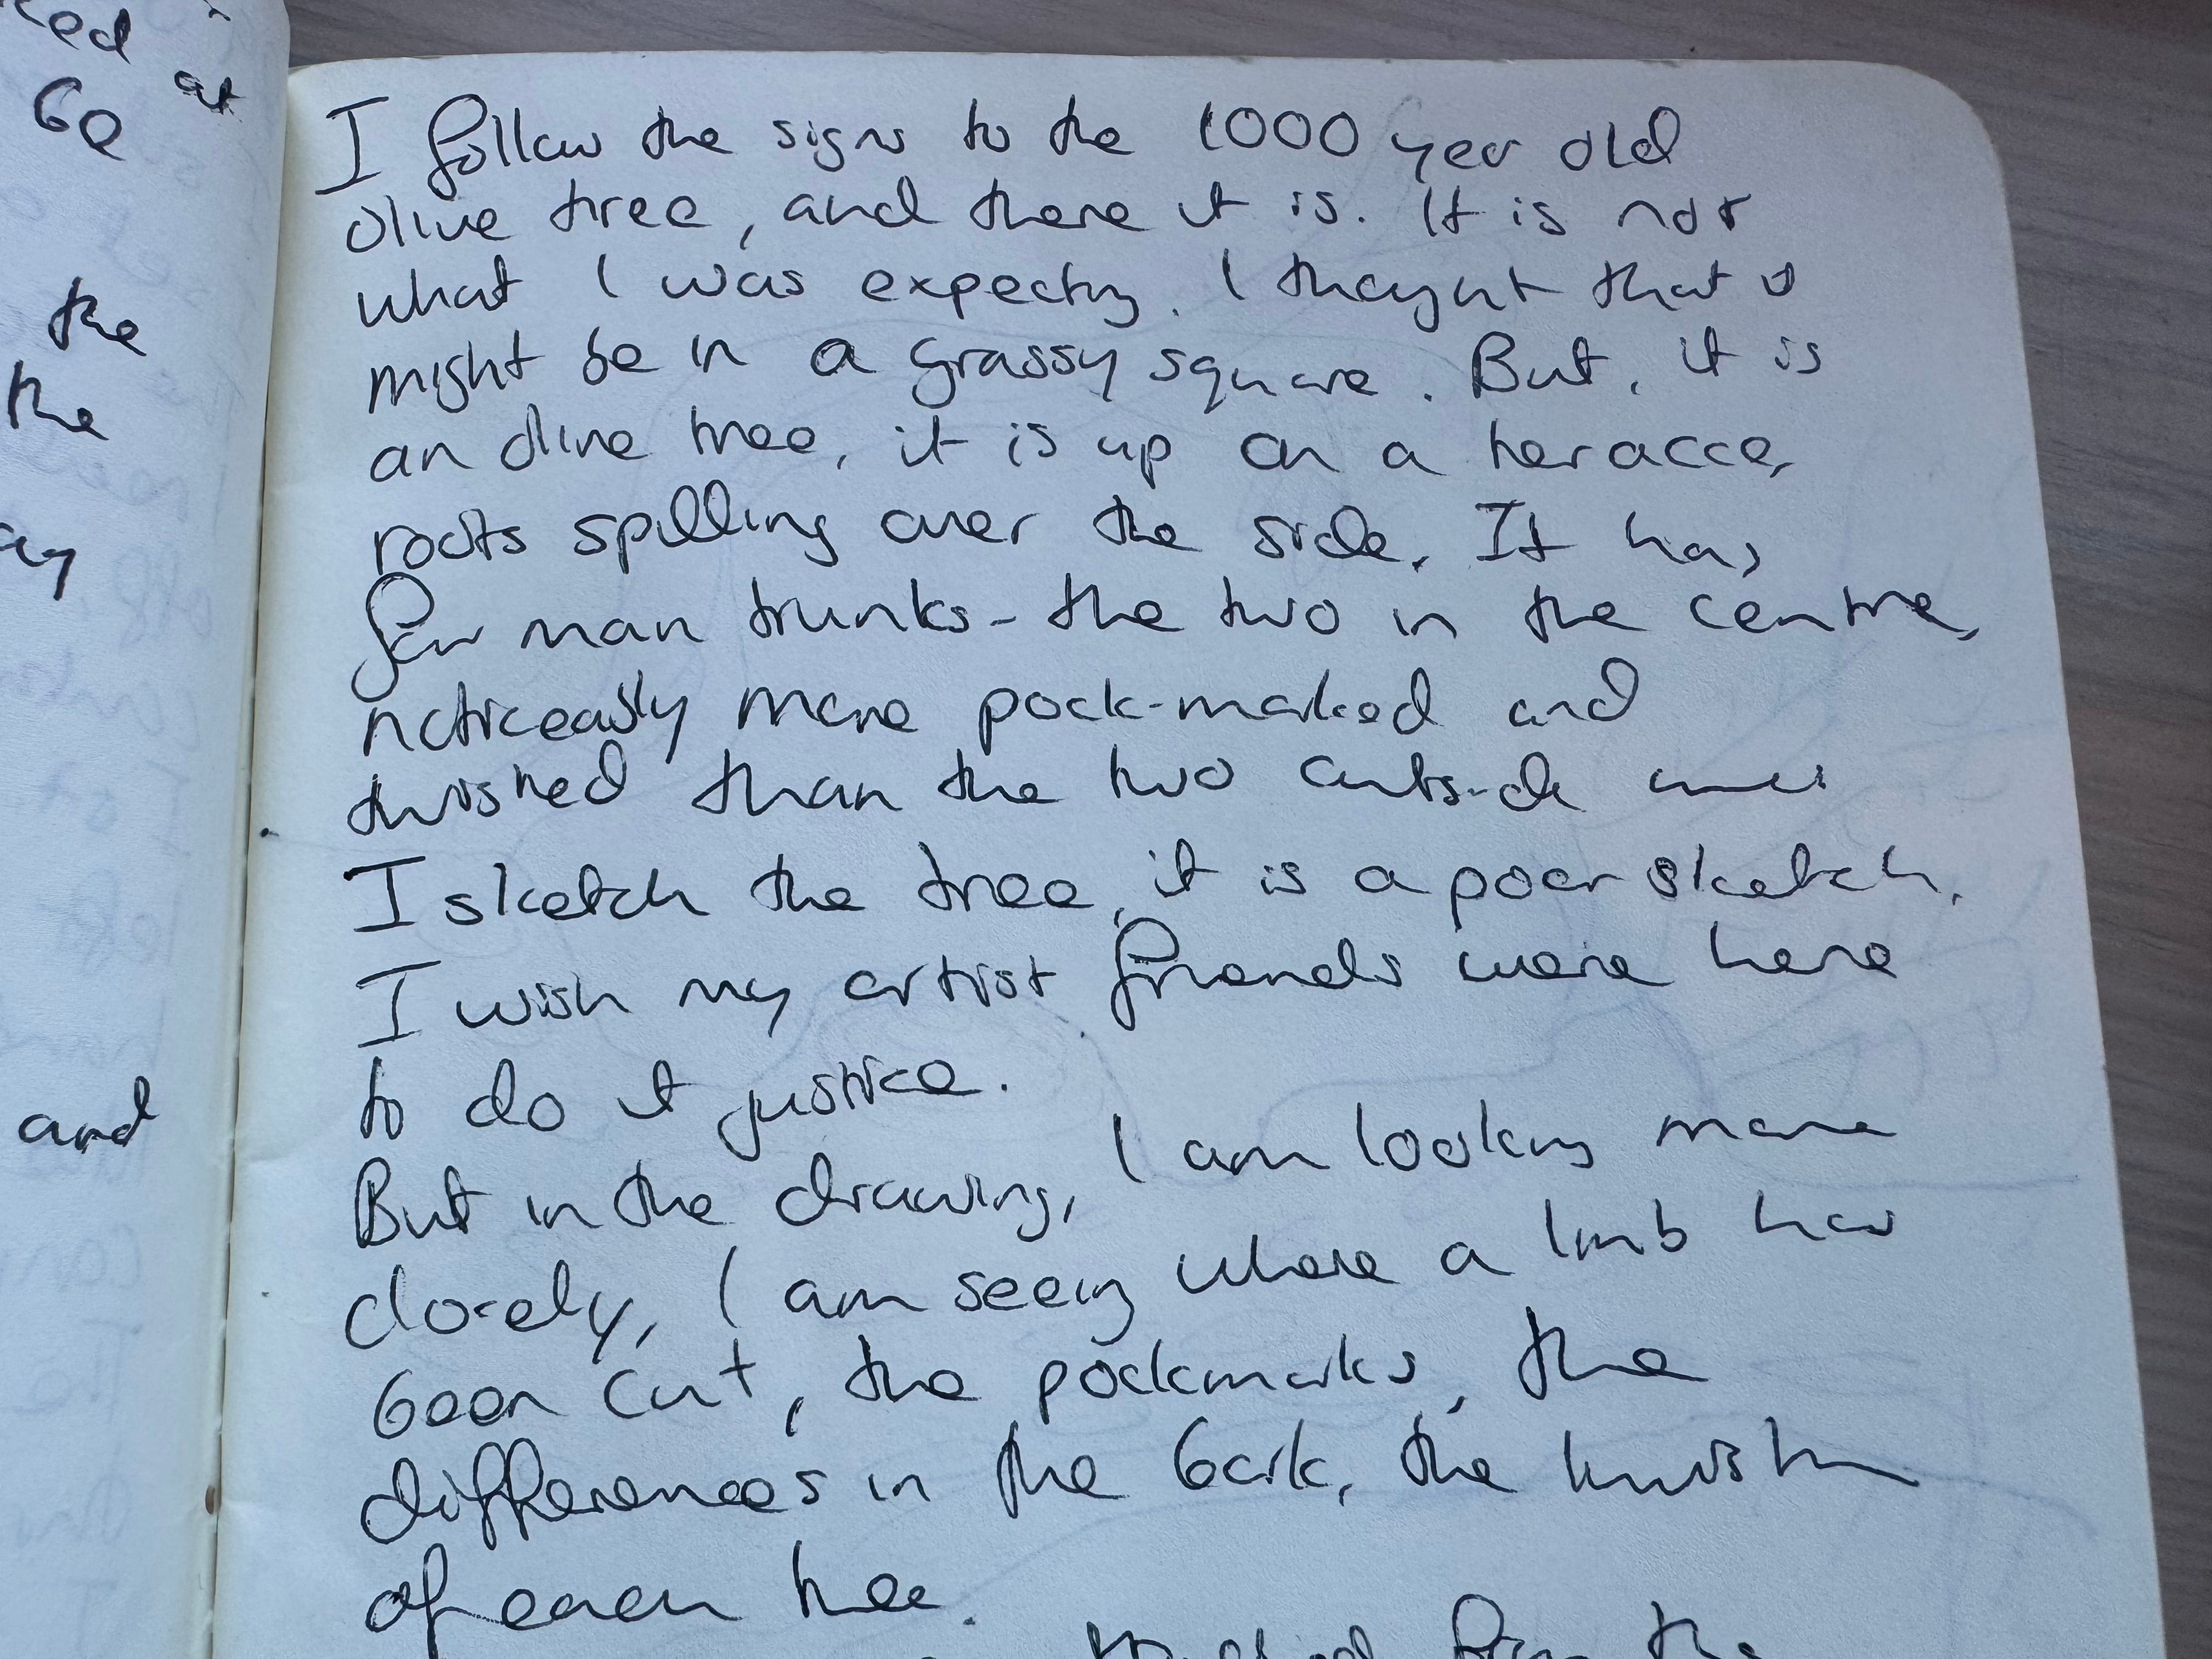 ced
60 at
the
the
ay
and
I follow the signs to the 1000 year old
olive tree, and there it is. It is not
what I was expecting. I thought that it
might be in a grassy square. But, it is
an olive tree, it is up on a teracce,
roots spilling over the side. It has
four main trunks - the two in the centre,
noticeably more pock-marked and
twisted than the two outside ones
I sketch the tree, it is a poor sketch.
I wish my artist friends were here
to do it justice.
But in the drawing, I am looking more
closely, I am seeing where a limb has
been cut, the pockmarks, the
differences in the bark, the twist
of each tree.
the